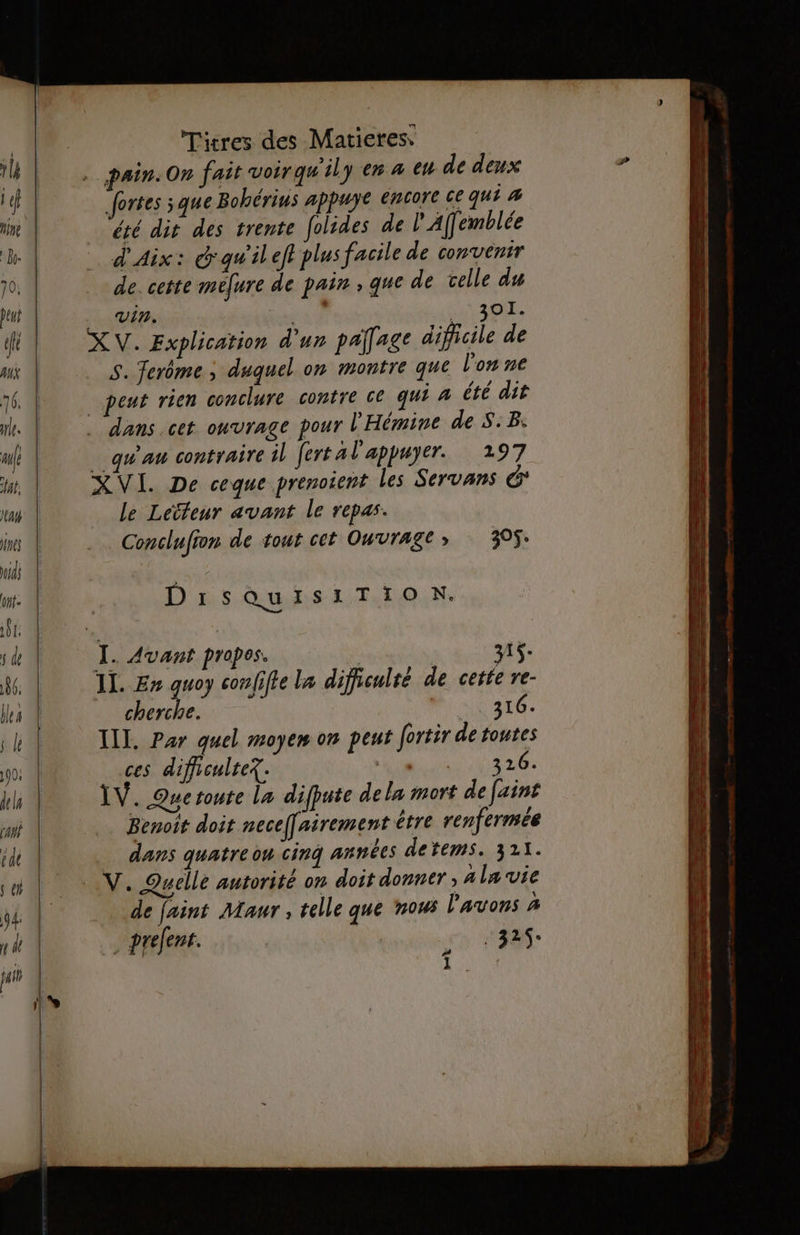 Titres des Matieres.
pain. On fait voir qu'il y en a eu de deux
ſortes ; que Bohérius appuye encore ce qui a
été dit des trente ſolides de l'Aſſemblée
d'Aix : & qu'il eſt plus facile de convenir
de cette meſure de pain, que de celle du
vin. 301.
XV. Explication d'un paſſage difficile de
S. Jerôme, duquel on montre que l'on ne
peut rien conclure contre ce qui a été dit
dans cet ouvrage pour l'Hémine de S. B.
qu'au contraire il ſert à l'appuyer. 297
XVI. De ce que prenoient les Servans &
le Lecteur avant le repas.
Concluſion de tout cet Ouvrage, 305.
DISQUISITION.
I. Avant propos. 315.
II. En quoy conſiſte la difficulté de cette re-
cherche. 316.
III. Par quel moyen on peut ſortir de toutes
ces difficultez. 326.
IV. Que toute la diſpute de la mort de ſaint
Benoit doit neceſſairement être renfermée
dans quatre ou cinq années de tems. 321.
V. Quelle autorité on doit donner, à la vie
de ſaint Maur, telle que nous l'avons à
preſent. 325.
i